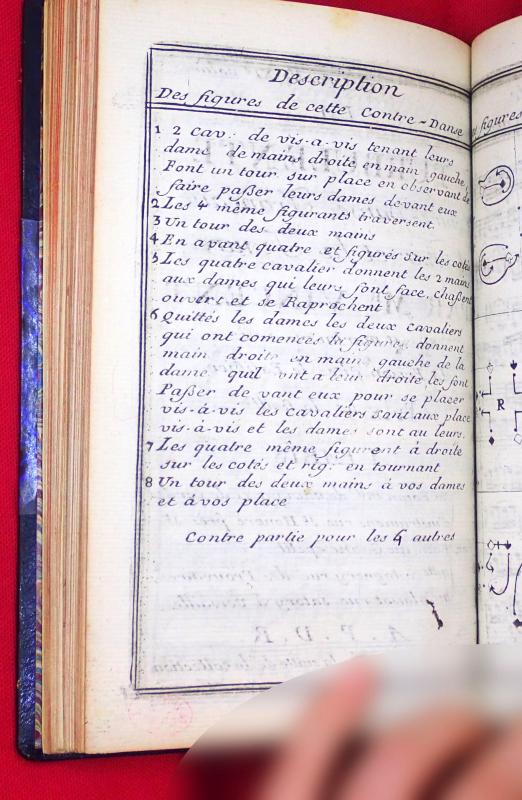 Description
Des figures de cette Contre-Danse
1 2 cav: de vis-a-vis tenant leurs
dame de mains droite en main gauche
Font un tour sur place en observant de
faire paßer leurs dames devant eux
2 Les 4 même figurants traversent.
3 Un tour des deux mains
4 En avant quatre et figurés sur les cotés
5 Les quatre cavalier donnent les 2 mains
aux dames qui leurs font face, chaßent
ouvert et se Raprochent
6 Quittés les dames les deux cavaliers
qui ont comencés la figure, donnent
main droite en main gauche de la
dame quil ont a leur droite les font
Paßer de vant eux pour se placer
vis-á-vis les cavaliers sont aux place
vis-á-vis et les dames sont au leurs.
7 Les quatre même figurent á droite
sur les cotés et rig: en tournant
8 Un tour des deux mains á vos dames
et á vos place
Contre partie pour les 4 autres
figures
R